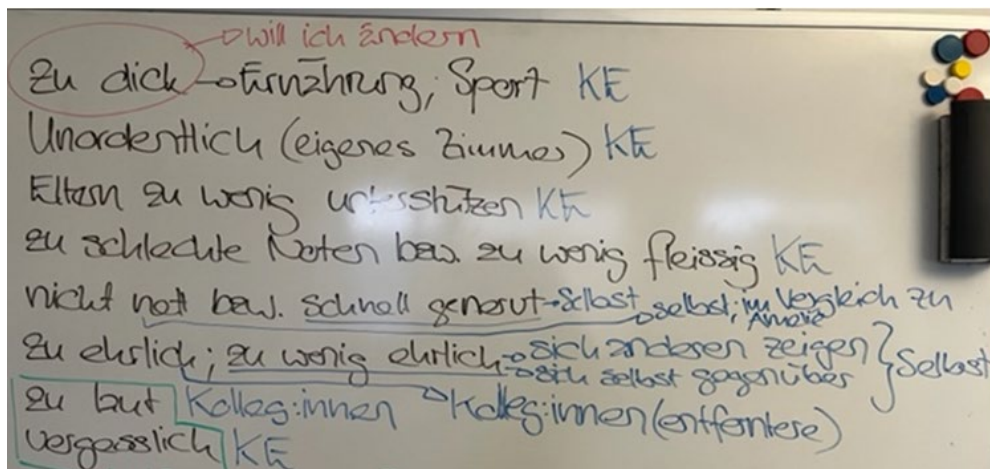 will ich ändern
Zu dick → Ernährung; Sport KE
Unordentlich (eigenes Zimmer) KE
Eltern zu wenig unterstützen KE
zu schlechte Noten bzw. zu wenig fleissig KE
nicht nett bzw. schnell genervt → Selbst → selbst, im Vergleich zu
Amelie
zu ehrlich; zu wenig ehrlich → sich anderen zeigen } Selbst
→ sich selbst gegenüber
zu laut Kolleg:innen → Kolleg:innen (entferntere)
Vergesslich KE